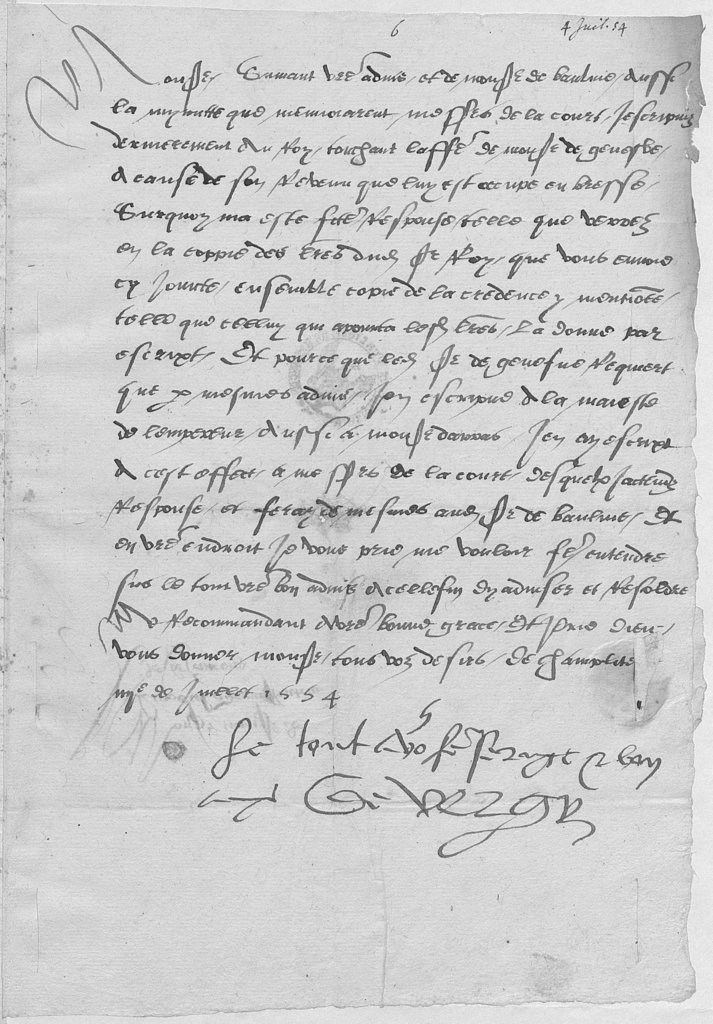 6
4 Juil. 54
Monsr. Suivant vre advis, et de monsr de baulme, aussi
la mynutte que m'envoiarent messrs de la court, Jescripviz
dernierement au Roy, touchant laffe de monsr de genefve,
a cause de son Revenu que luy est occupe en bresse,
Surquoy ma este fcte Response, telle que verrez
en la coppie des lres dud sr Roy, que vous envoie
cy Joincte, ensemble copie de la credence y mentiónée,
telle que celluy qui apourta lesd lres, la donne par
escript, Et pource que led sr de genefve Requiert
que p mesmes advis, Jen escripve a la maieste
de lempereur, aussi a monsr darras, Jen ay escript
a cest effect, a messrs de la court, desquelx Jactendz
Response, et feray de mesmes aud sr de baulme, Et
en vre endroit Je vous prie me vouloir fe entendre
sur le tout vre bon advis, a celle fin dy adviser et Resoldre
Me Recommandant a vre bonne grace, Et prie dieu,
vous donner, monsr, tous voz desirs, de champlite
iiije de Juillet 1554
Le tout vre
De Vergy